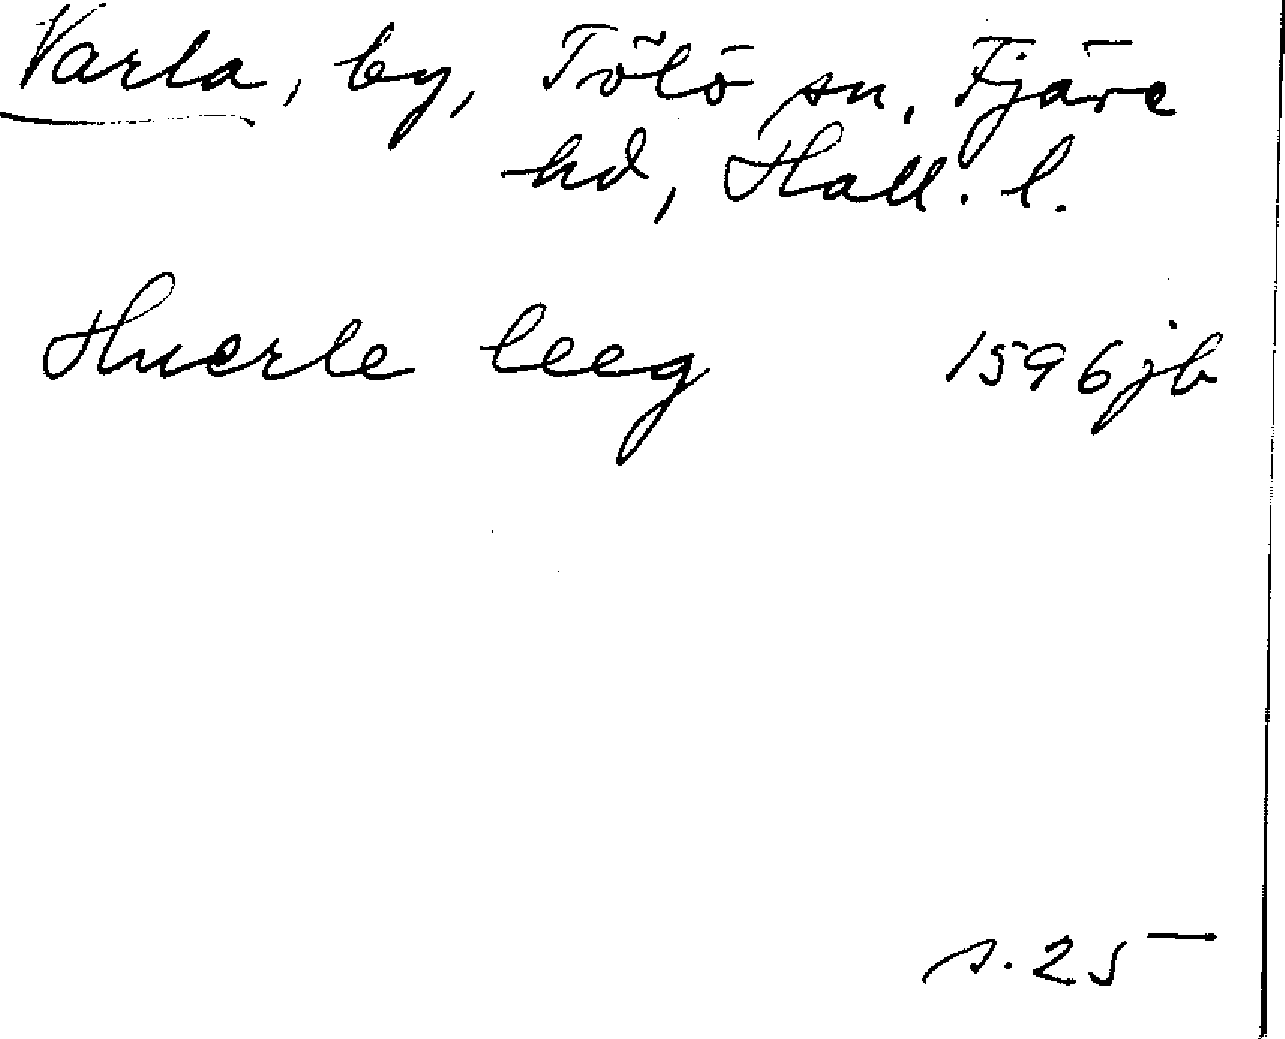 Varla, by, Tölö sn, Fjäre
hd, Hall. l.
Huerle leeg 1596 jb
s. 25